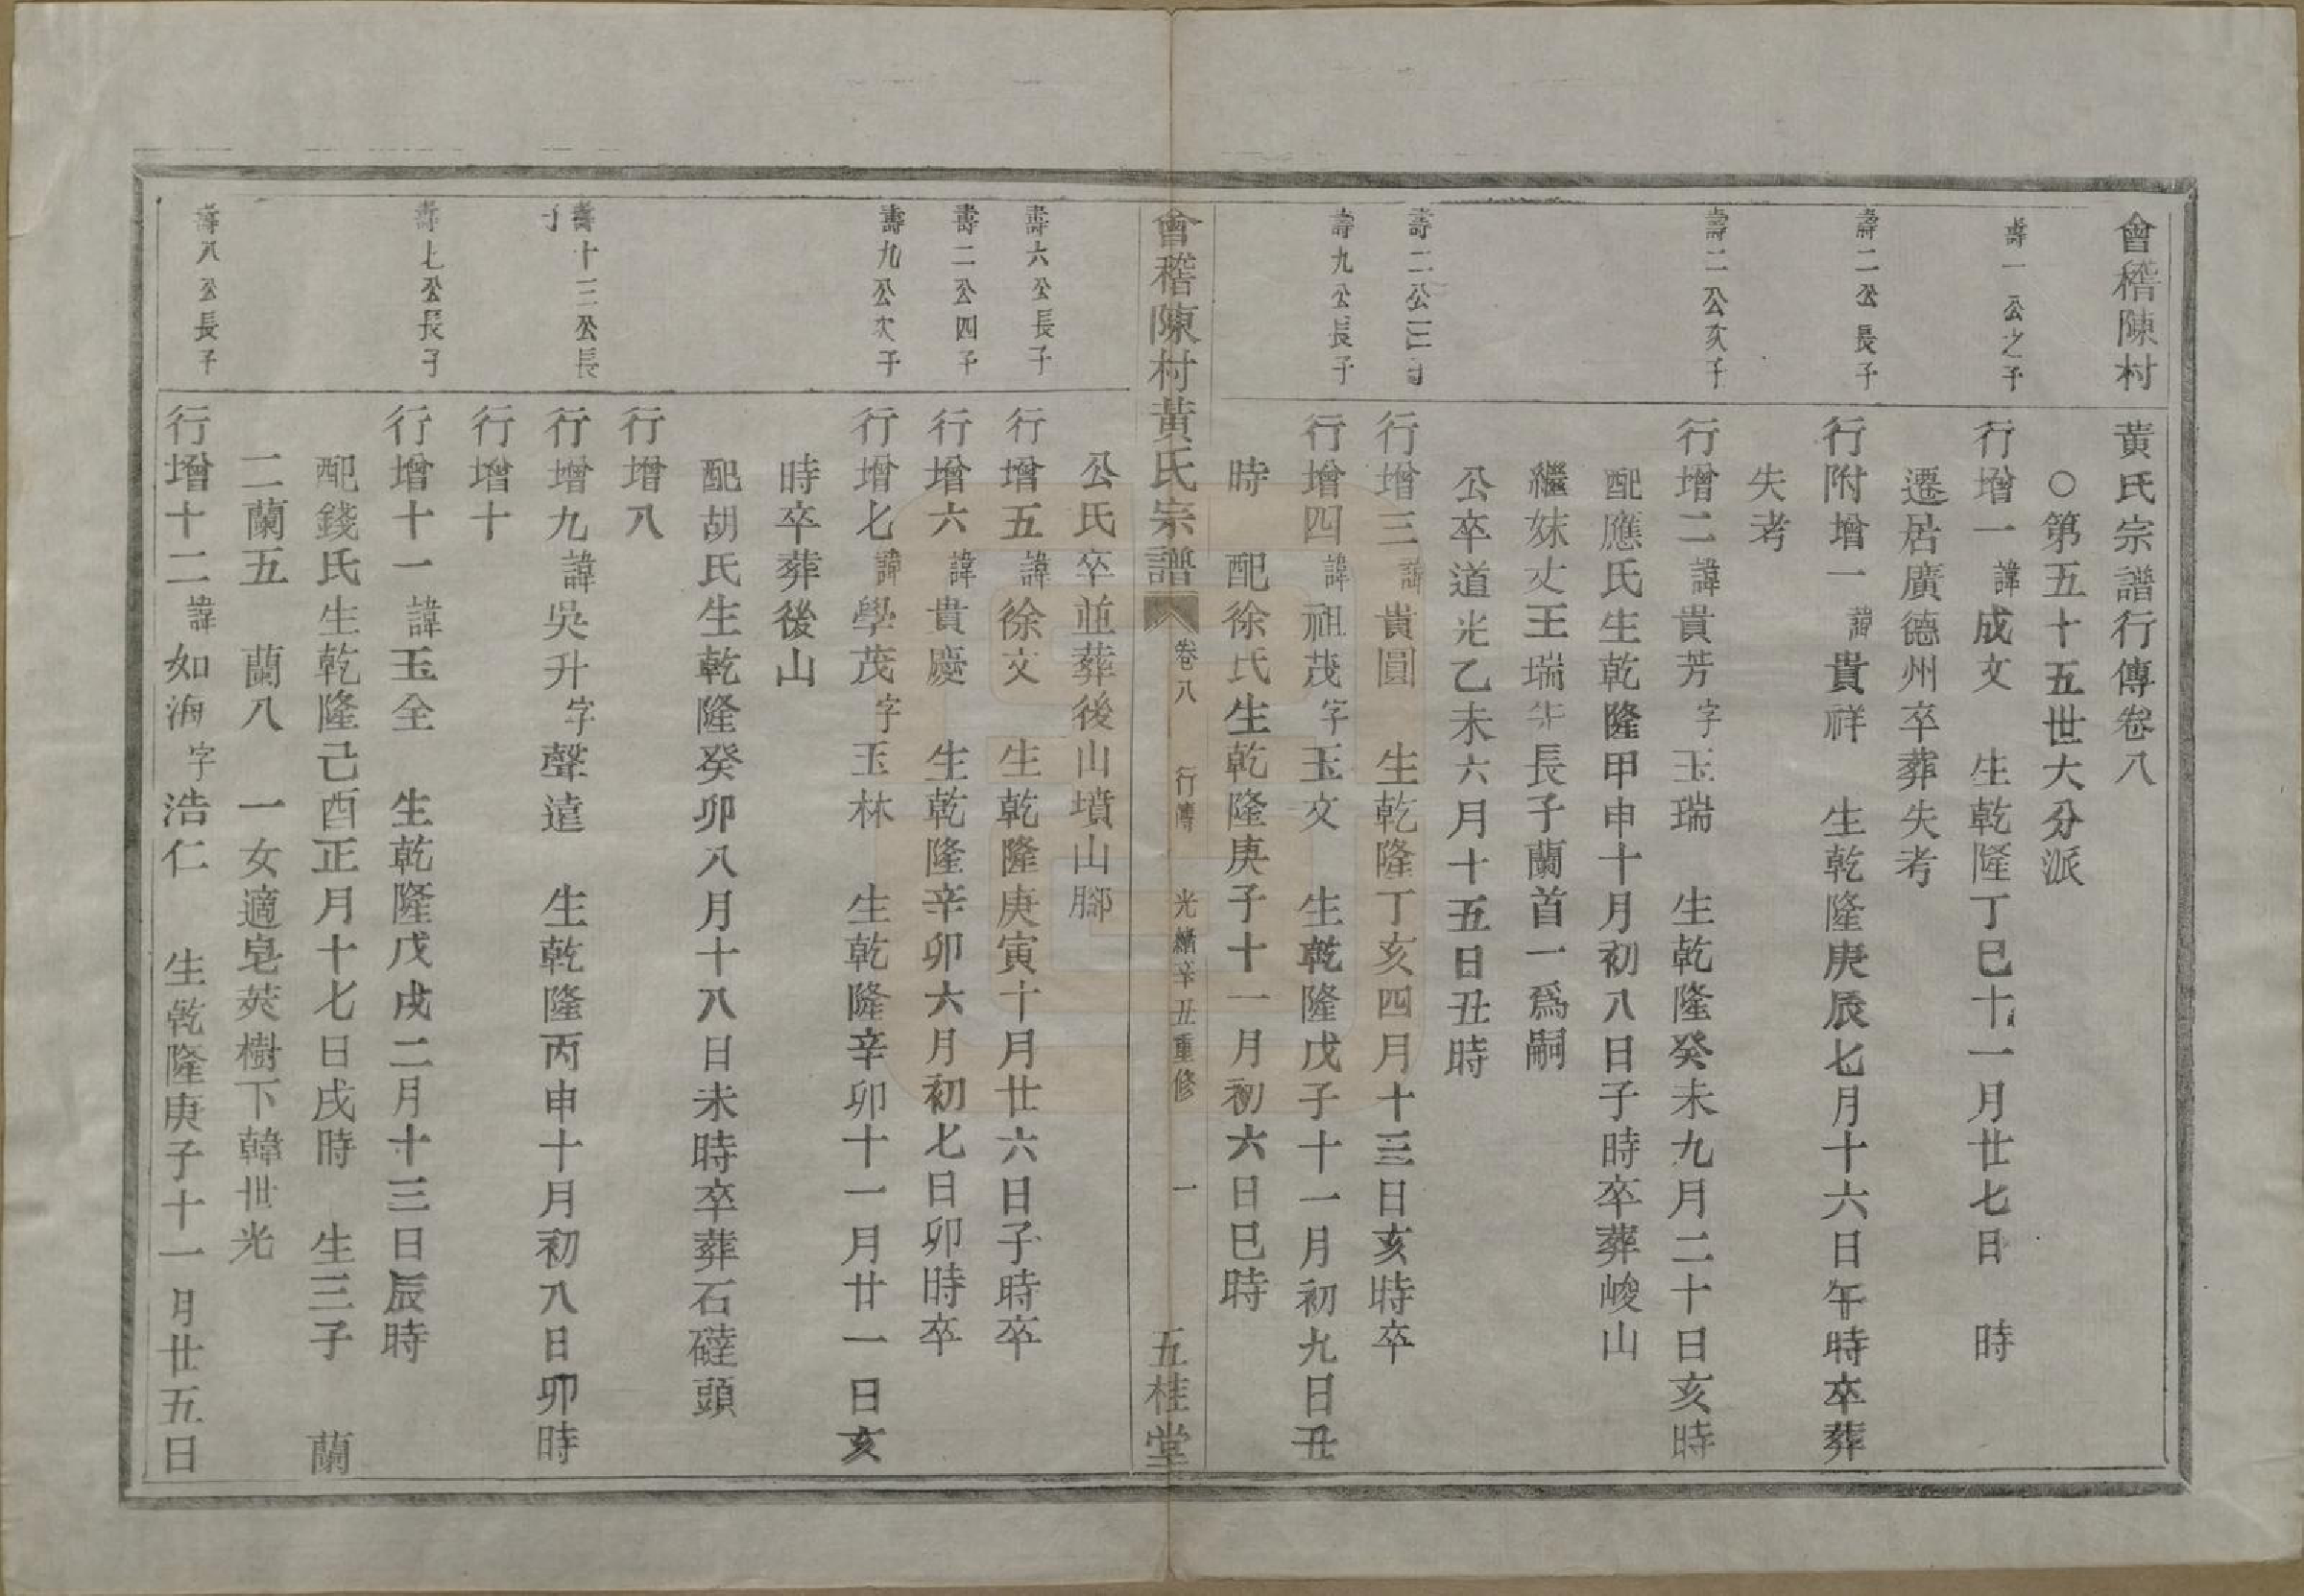 會稽陳村黃氏宗譜行傳卷八
○第五十五世大分派
壽一公之子
行增一諱成文 生乾隆丁巳十一月廿七日 時
遷居廣德州卒葬失考
壽二公長子
行附增一諱貴祥 生乾隆庚辰七月十六日午時卒葬
失考
壽二公次子
行增二諱貴芳字玉瑞 生乾隆癸未九月二十日亥時
配應氏生乾隆甲申十月初八日子時卒葬峻山
繼妹丈王瑞華長子蘭首一爲嗣
公卒道光乙未六月十五日丑時
壽二公三子
行增三諱貴圓 生乾隆丁亥四月十三日亥時卒
壽九公長子
行增四諱祖茂字玉文 生乾隆戊子十一月初九日丑
時 配徐氏生乾隆庚子十一月初六日巳時
會稽陳村黃氏宗譜 卷八 行傳 光緒辛丑重修 一 五桂堂
公氏卒並葬後山墳山腳
壽六公長子
行增五諱徐文 生乾隆庚寅十月廿六日子時卒
壽二公四子
行增六諱貴慶 生乾隆辛卯六月初七日卯時卒
壽九公次子
行增七諱學茂字玉林 生乾隆辛卯十一月廿一日亥
時卒葬後山
配胡氏生乾隆癸卯八月十八日未時卒葬石礓頭
行增八
壽十三公長子
行增九諱吳升字聲遠 生乾隆丙申十月初八日卯時
行增十
壽七公長子
行增十一諱玉全 生乾隆戊戌二月十三日辰時
配錢氏生乾隆己酉正月十七日戌時 生三子 蘭
二蘭五 蘭八 一女適皂莢樹下韓世光
壽八公長子
行增十二諱如海字浩仁 生乾隆庚子十一月廿五日